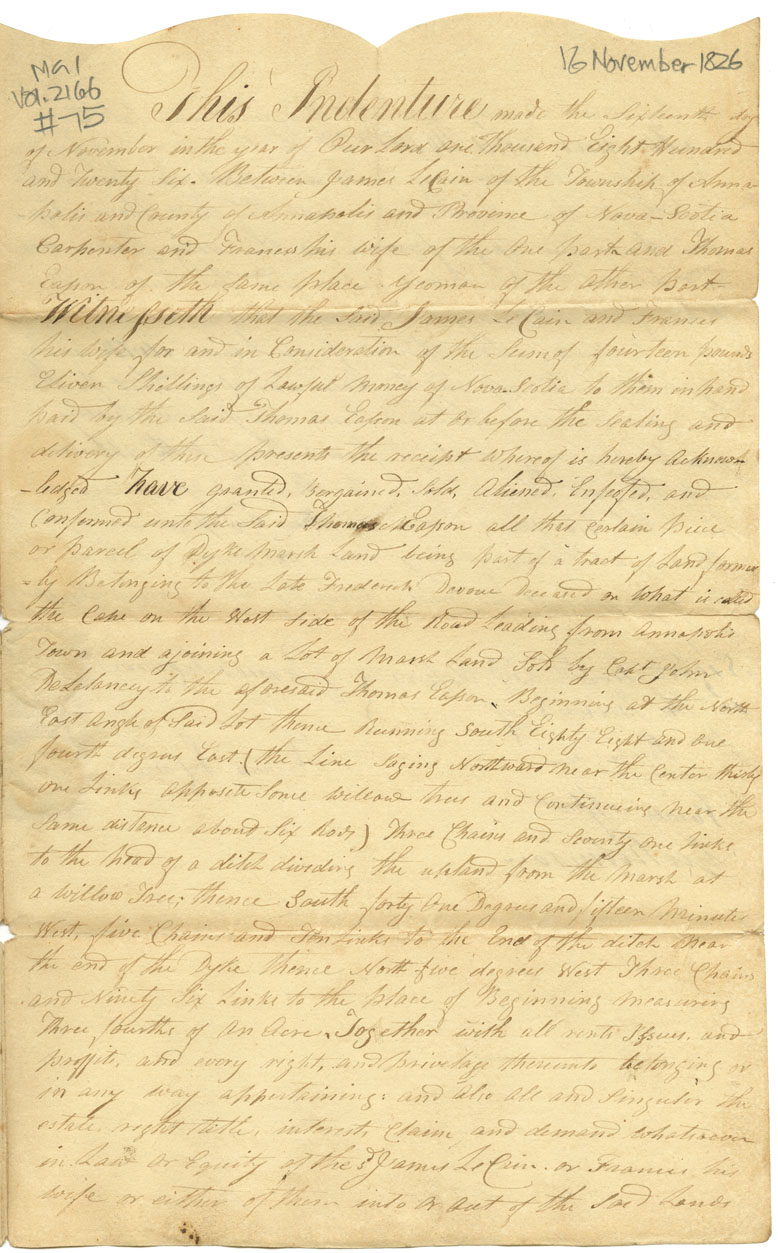 MG1
Vol. 2166
#75
16 November 1826
This Indenture made the Sixteenth day
of November in the year of Our Lord one thousand Eight Hundred
and Twenty Six. Between James LeCain of the Township of Anna
-polis and County of Annapolis and Province of Nova-Scotia
Carpenter and Francess his wife of the one part and Thomas
Eason of the same place Yeoman of the other part
Witnesseth that the said James LeCain and Frances
his wife for and in Consideration of the Sum of fourteen pounds
Eliven Shillings of Lawful money of Nova-Scotia to them in hand
paid by the Said Thomas Eason at or before the sealing and
delivery of these presents the receipt whereof is hereby Acknow-
-ledged Have granted, Bargained, Sold, Aliened, Enfeofed, and
Confermed unto the Said Thomas Eason all that Certain piece
or parcel of Dyke Marsh Land being part of a tract of Land, former
-ly Belonging to the Late Frederick Devoue Deceased on What is called
the Cape on the West side of the Road Leading from Annapolis
Town and ajoining a Lot of Marsh Land Sold by Capt John
DeLelancey to the aforesaid Thomas Eason. Beginning at the North
East Angle of Said Lot thence Running South Eighty Eight and one
fourth degrees East. (the Line Saging Northward near the Center thirty
one Links opposite Some Willow trees and Continueing near the
Same distance about Six Rods) Three Chains and Seventy one links
to the head of a ditch dividing the upland from the Marsh at
a willow Tree; thence South forty One Degrees and fifteen Mainutes
West, five Chains and Ten Links to the End of the ditch Near
the end of the Dyke thence North five degrees West Three Chains
and Ninety Six Links to the place of Beginning measuring
Three fourths of an Acre, Together with all rents Issues, and
proffits, and every right, and privelage thereunto belonging or
in any way appertaining: and also all and Singular the
estate, right title, interest, Claim, and demand whatsoever
in Law or Equity of the sd James LeCain. or Francis his
wife or either of them into or out of the Said Lands